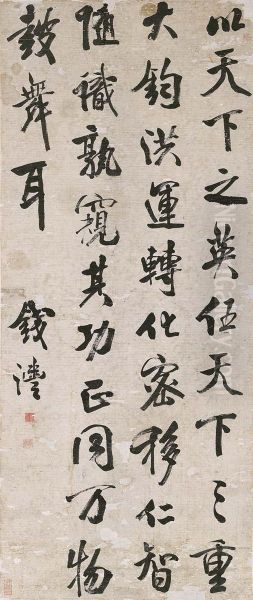 以天下之英任天下之重
大鈞洪運轉化密移仁智
隨識孰窺其功正同万物
鼓舞耳
錢灃